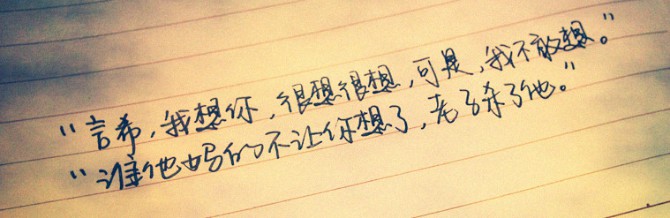 "言希，我想你，很想很想，可是，我不敢想。"
"谁他妈的不让你想了，老子杀了他。"